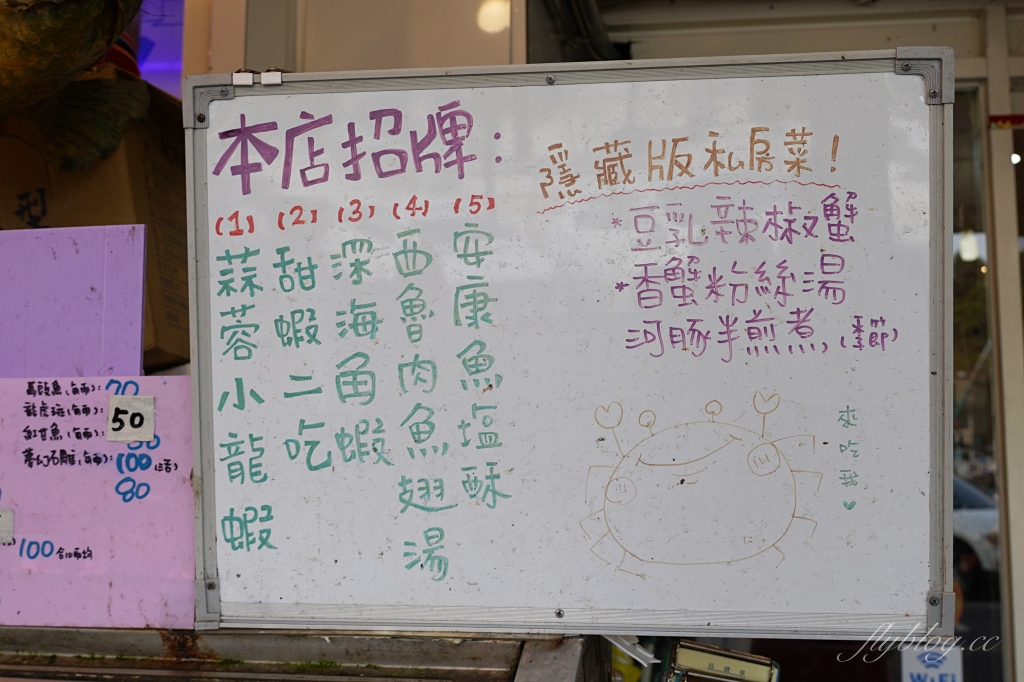 本店招牌：
(1) (2) (3) (4) (5)
蒜蓉小龍蝦
甜蝦二吃
深海角蝦
西魯肉魚翅湯
安康魚塩酥
隱藏版私房菜！
*豆乳辣椒蟹
*香蟹粉絲湯
河豚半煎煮,(季節)
來吃我♥
型
馬頭魚(每兩): 70
龍虎斑(每兩):
50
紅甘魚(每兩):
100
80
100
flyblog.cc
WiFi